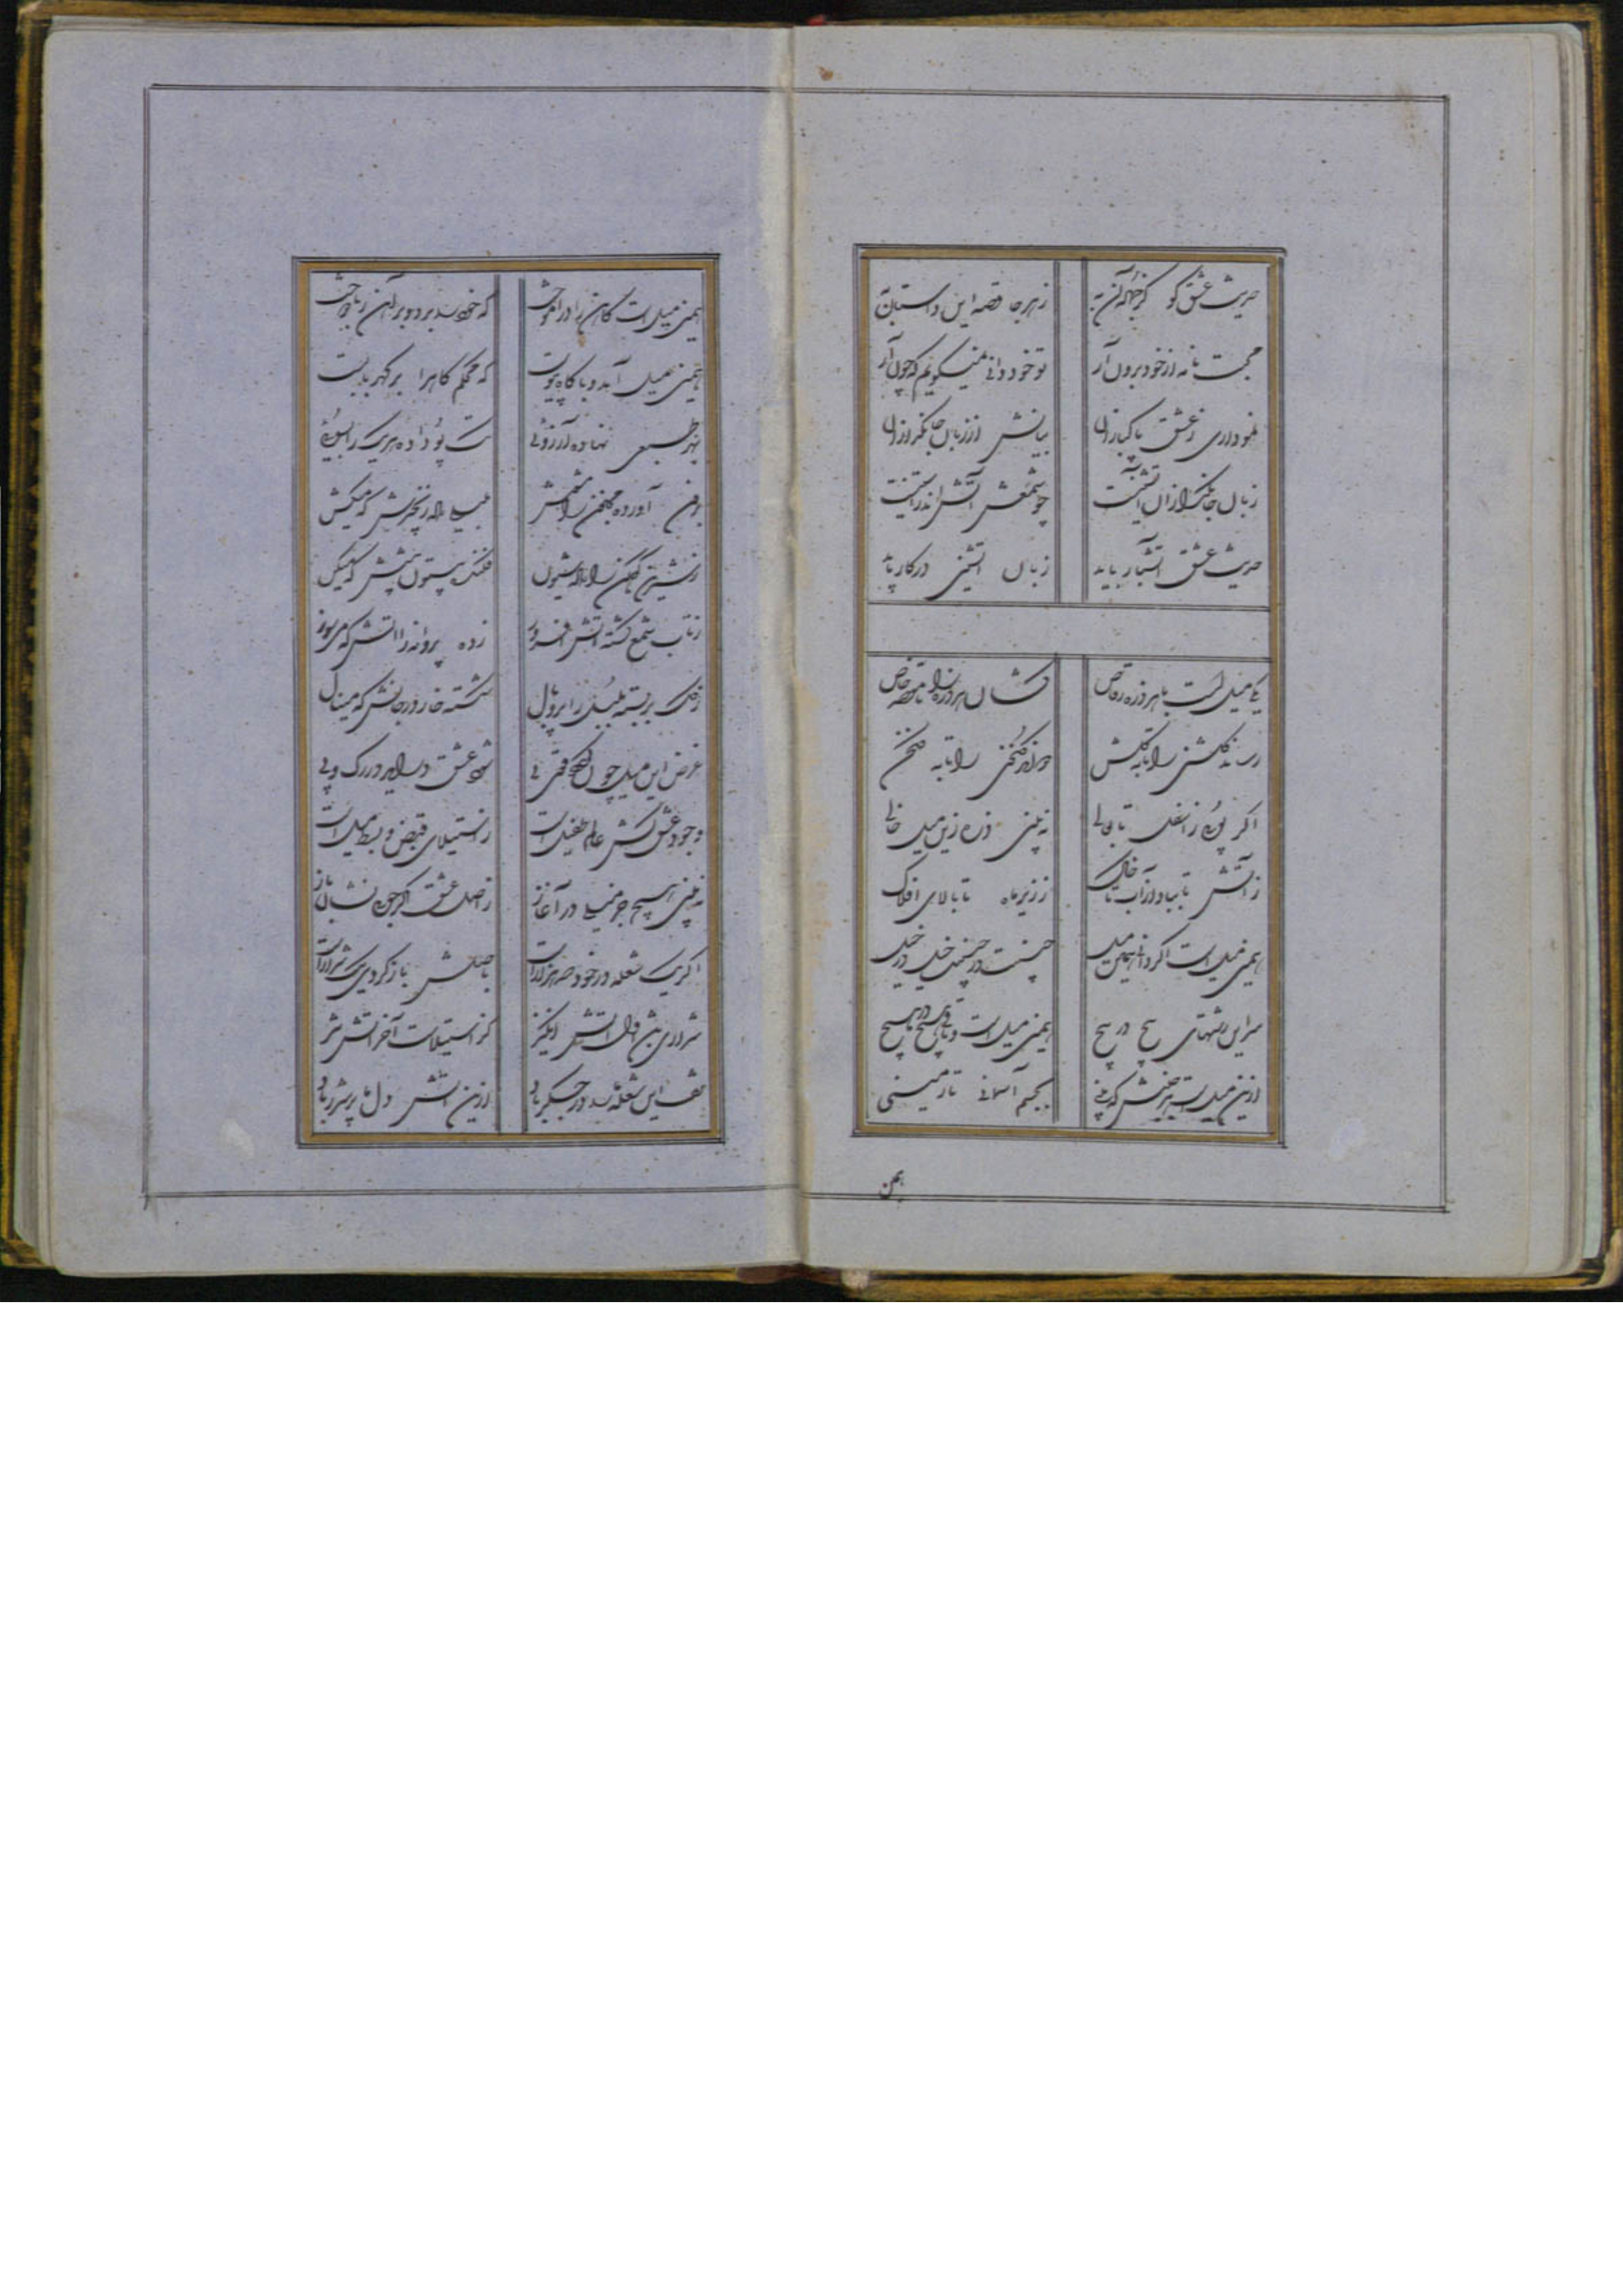 حدیث عشق گو کز جمله آن به
ز هر جا قصه این داستان به
محبت نامه از خود برون آر
تو خود دانی نمیگویم که چون آر
نموداری ز عشق پاکبازان
بیانش از زبان جانگدازان
زبان جانگدازان آتشینست
چو شمعش آتش اندر آستینست
حدیث عشق آتشبار باید
زبان آتشین در کار باید
یکی میل است با هر ذره رقاص
کشان هر ذره را تا مقصد خاص
رساند گلشنی را تا به گلشن
دواند گلخنی را تا به گلخن
اگر پوئی ز اسفل تا بعالی
نه بینی ذره زین میل خالی
ز آتش تا بباد از آب تا خاک
ز زیر ماه تا بالای افلاک
همین میل است اگر دانی همین میل
جنیبت در جنیبت خیل در خیل
سر این رشتهای پیچ در پیچ
همین میل است و باقی هیچ در هیچ
ازین میل است هر جنبش که بینی
بجسم آسمانی تا زمینی
همن
همین میل است کاهن را در آموخت
که خود را برد و بر آهن ربا دوخت
همین میل آمد و با کاه پیوست
که محکم کاه را بر کهربا بست
بهر طبعی نهاده آرزوئی
تک و پو داده هر یک را بسوئی
برون آورده مجنون را مشوش
بلیلی داده زنجیرش که میکش
ز شیرین کوهکن را داده شیون
فکنده بیستون پیشش که میکن
ز تاب شمع گشته آتش افروز
زده پروانه را آتش که میسوز
ز گل بر بسته بلبل را پر و بال
شکسته خار در جانش که مینال
غرض این میل چون قوی پی
شود عشق و در آید در رگ و پی
وجود عشق کش عالم طفیل است
ز استیلای قبض و بسط میل است
نه بینی هیچ جز میلی در آغاز
ز اصل عشق اگر جوئی نشان باز
اگر یک شعله در خود صد هزار است
باصلش باز گردی یک شرار است
شراری باشد اول آتش انگیز
کز استیلاست آخر آتش تیز
تف این شعله در جگر باد
ازین آتش دل ما پر شرر باد